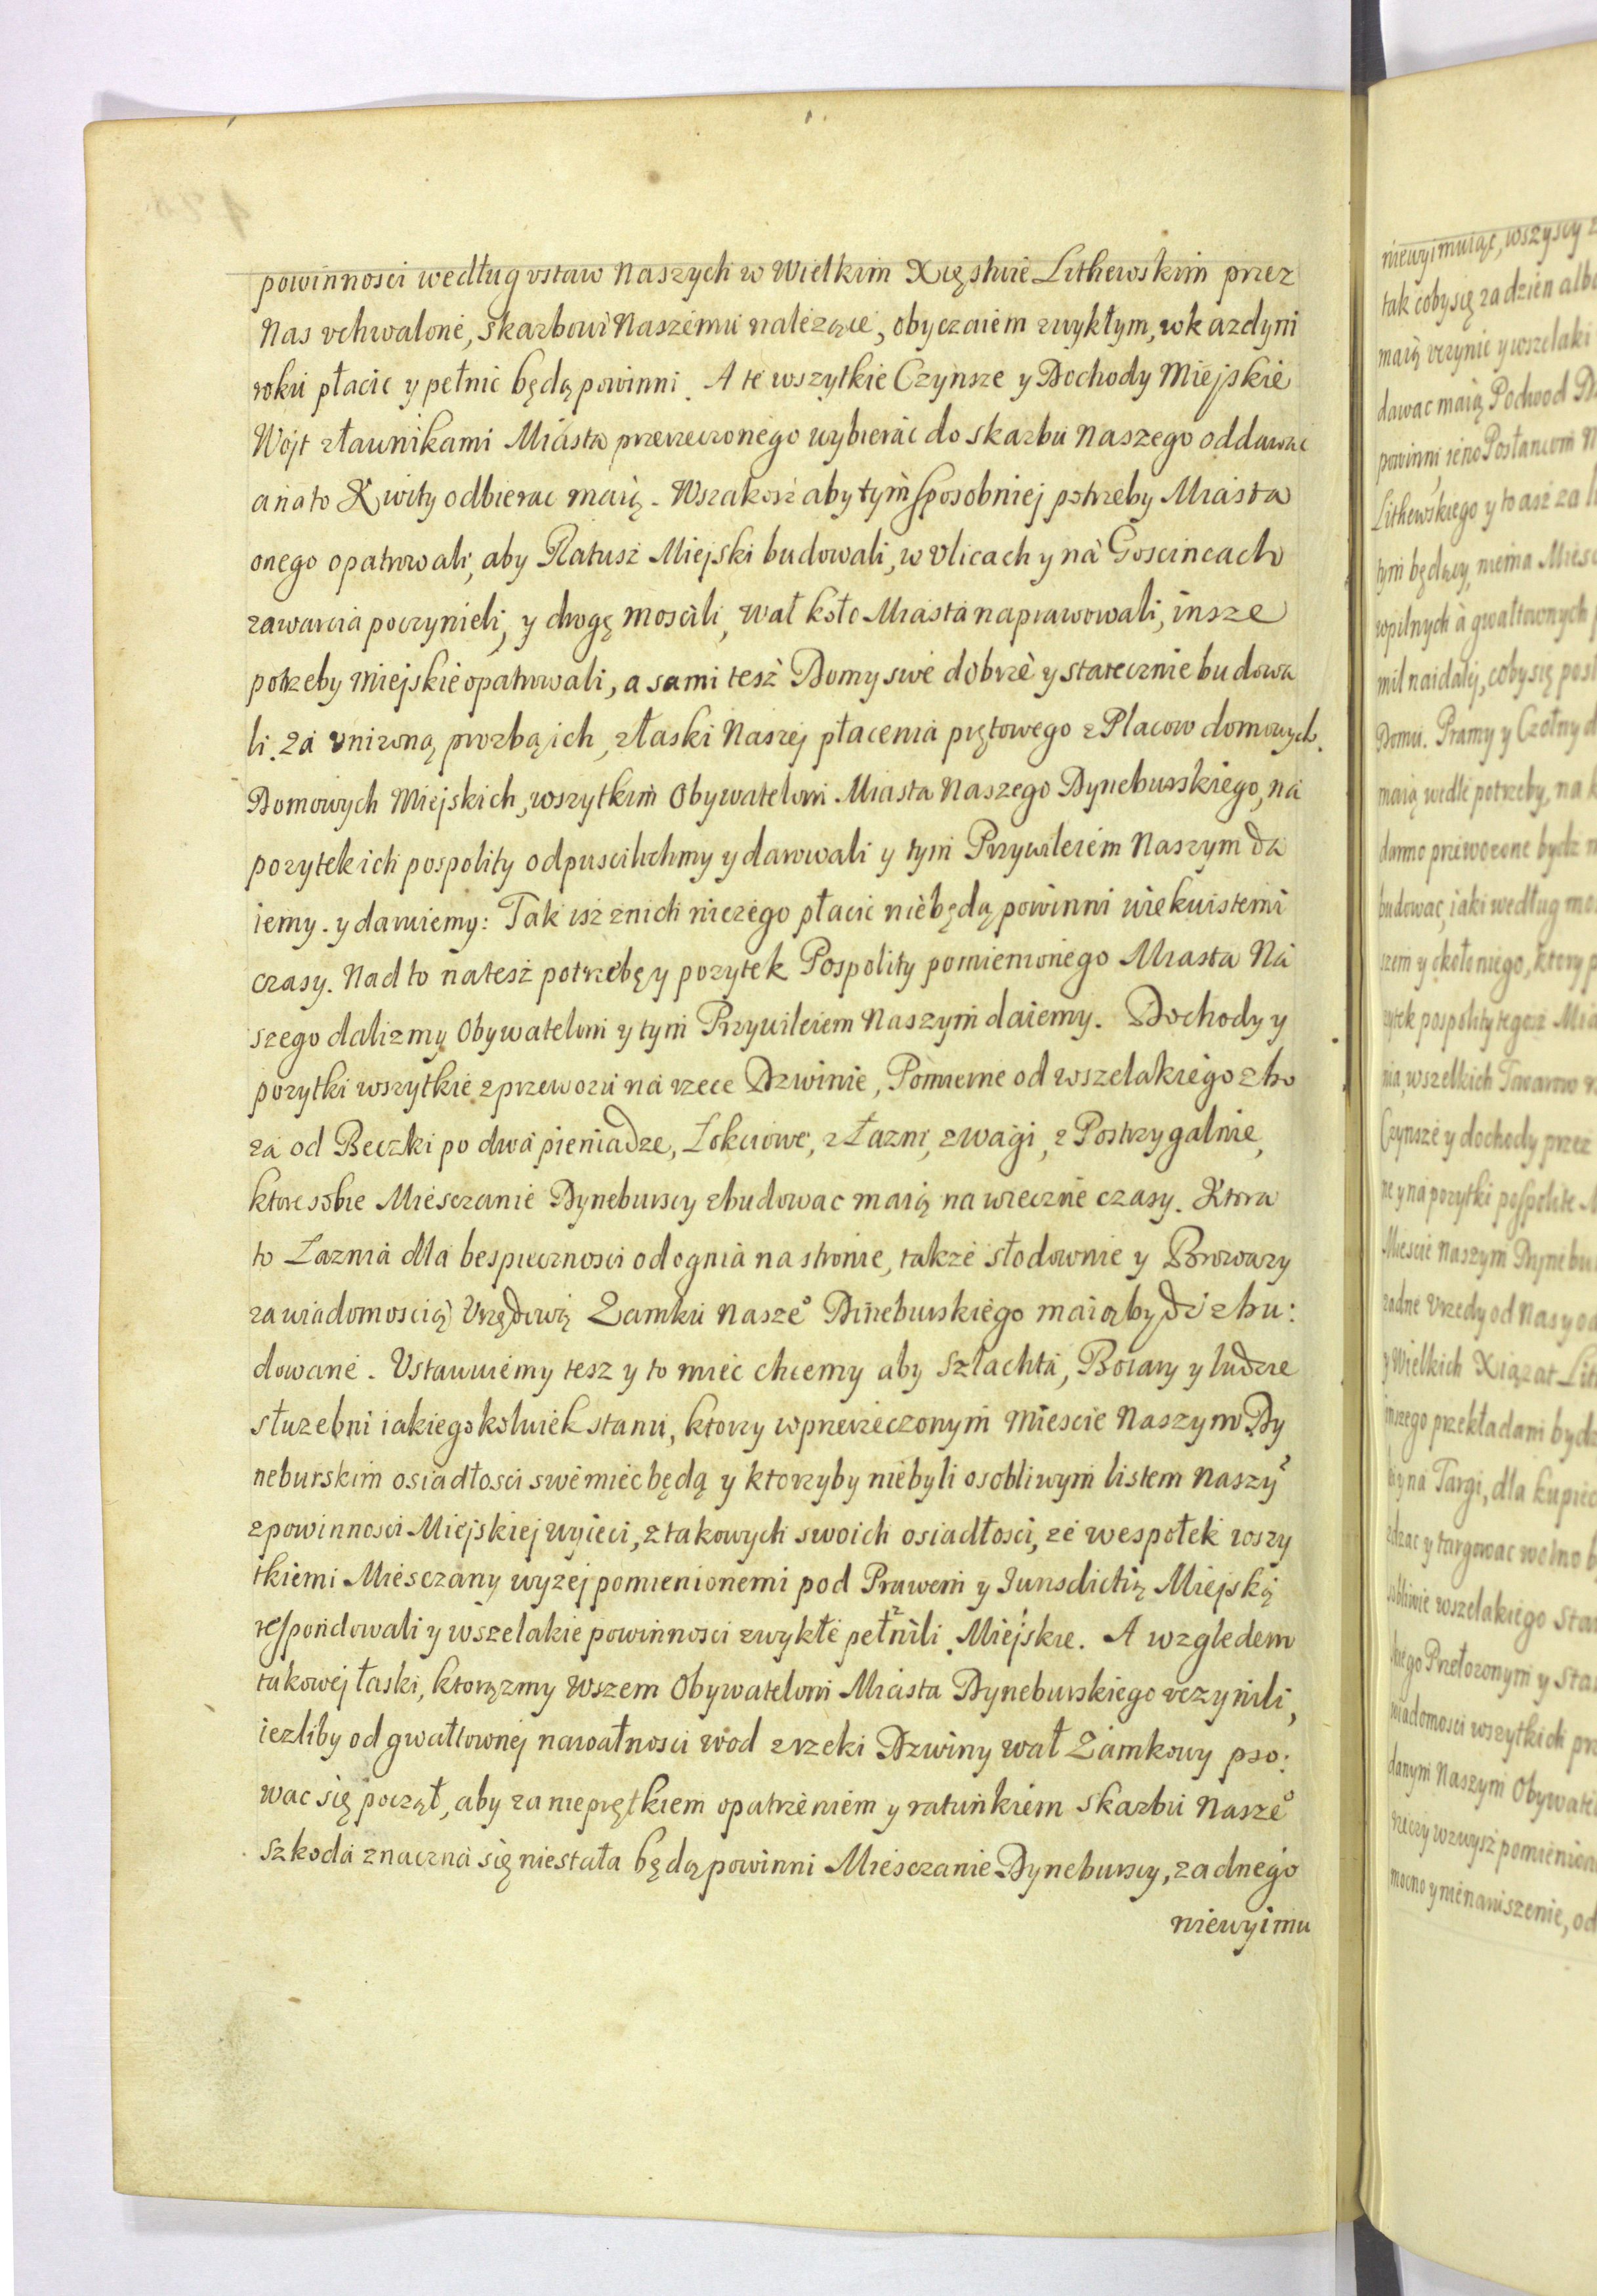 powinnosci według vstaw Naszych w Wielkim Xięstwie Lithewskim przez
Nas vchwalone, skarbowi Naszemu należące, obyczaiem zwykłym, wkazdym
roku płacic y pełnic będą powinni. A te wszytkie Czynsze y Dochody Miejskie
Wójt złaunikami Miasta przerzeczonego wybierac do skarbu Naszego oddawac
a na to Kwity odbierac maią. Wszakosz aby tym sposobniej potrzeby Miasta
onego opatrowali, aby Ratusz Miejski budowali, w vlicach y na Goscincach
zawarcia poczynieli, y drogę moscili, wał koło Miasta naprawowali, insze
potrzeby miejskie opatrowali, a sami tesz Domy swe dobrze y statecznie budowa
li. Za vnizoną prozbą ich, złaski Naszej płacenia prętowego z Placow domowych.
Domowych Miejskich, wszytkim Obywatelom Miasta Naszego Dyneburskiego, na
pozytek ich pospolity odpuscilichmy y darowali y tym Przywileiem Naszym da
iemy. y daruiemy: Tak isz znich niczego płacic niebędą powinni wiekuistemi
czasy. Nad to na tesz potrzebę y pozytek Pospolity pomienionego Miasta Na
szego dalizmy Obywatelom y tym Przywileiem Naszym daiemy. Dochody y
pozytki wszytkie z przewozu na rzece Dzwinie, Pomierne od wszelakiego zbo
za od Beczki po dwa pieniadze, Łokciowe, z Łazni, z wagi, z Postrzygalnie,
ktore sobie Miesczanie Dyneburscy zbudowac maią na wieczne czasy. Ktora
to Łaznia dla bespiecznosci od ognia na stronie, takze słodownie y Browary
za wiadomoscią Vrzędową Zamku Nasze° Dineburskiego maią bydz zbu:
dowane. Ustawuiemy tesz y to miec chcemy aby Szlachta, Boiary y ludzie
słuzebni iakiegokolwiek stanu, ktorzy w przerzeczonym Miescie Naszym Dy
neburskim osiadłosci swe miec będą y ktorzyby niebyli osobliwym listem Naszy
z powinnosci Miejskiej wyieci, z takowych swoich osiadłosci, ze wespołek wszy
tkiemi Miesczany wyzej pomienionemi pod Prawem y Jurisdictią Miejską
respondowali y wszelakie powinnosci zwykłe pełnili Miejskie. A względem
takowej łaski, ktorązmy Wszem Obywatelom Miasta Dyneburskiego vczynili,
iezliby od gwałtownej nawałnosci wod z rzeki Dzwiny wał Zamkowy pso:
wac się począł, aby za nieprętkiem opatrzeniem y ratunkiem Skarbu Nasze°
szkoda znaczna się niestała będą powinni Miesczanie Dyneburscy, zadnego
niewyimu
niewyimuiąc, wszyscy z
tak coby się za dzien albo
maią vczynic y wszelaki
dawac maią Podwod
powinni, ieno Posłancom N
Lithewskiego y to asz za
tym będący, niema Miesc
w pilnych a gwałtownych
mil naidalej, coby się
Domu. Pramy y Czołny d
maią wedle potrzeby, na
darmo przewozone bydz
budowac, iaki według
szem y około niego, ktory
zytek pospolity tegosz Mia
nia, wszelkich Towarow
Czynsze y dochody przez
ne y na pozytki pospolite
Miescie Naszym Dynebu
zadne Vrzedy od Nas y od
y Wielkich Xiązat Lit
inszego przekładani bydz
y na Targi, dla kupiec
y targowac wolno b
wszelakiego Sta
Przełozonym y Sta
wiadomosci wszytkich prz
danym Naszym Obywatel
rzeczy wzwysz pomienion
mocno y nienaruszenie, od